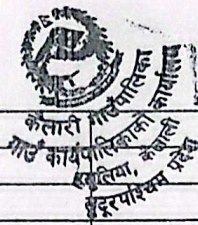 कैलारी गाउँपालिका
गाउँ कार्यपालिकाको कार्यालय
हसुलिया, कैलाली
सुदूरपश्चिम प्रदेश